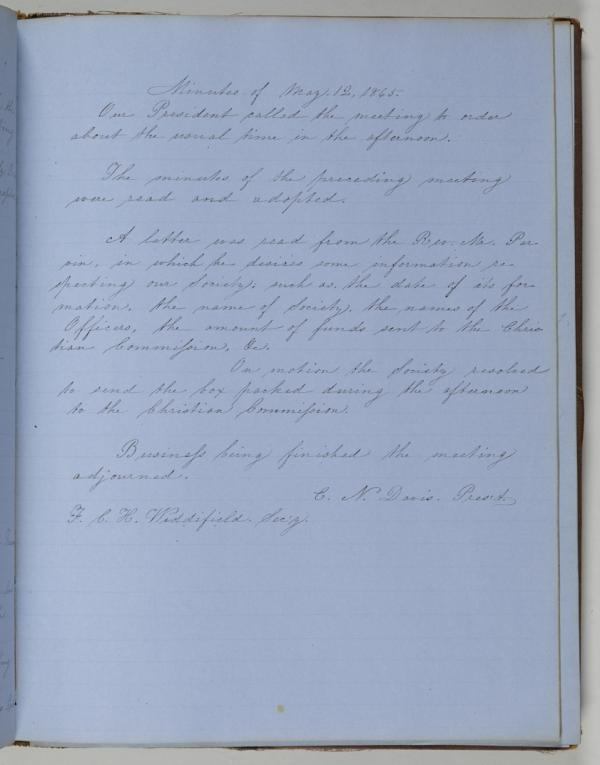 Minutes of May. 12, 1865.
Our President called the meeting to order
about the usual time in the afternoon.
The minutes of the preceding meeting
were read and adopted.
A letter was read from the Rev. Mr. Par-
vin, in which he desires some information re-
specting our Society, such as, the date of its for-
mation, the name of Society, the names of the
Officers, the amount of funds sent to the Chris-
tian Commission, &c.
On motion the Society resolved
to send the box packed during the afternoon
to the Christian Commission.
Business being finished the meeting
adjourned.
C. N. Davis. Pres't
F. C. H. Widdifield. Sec'y.